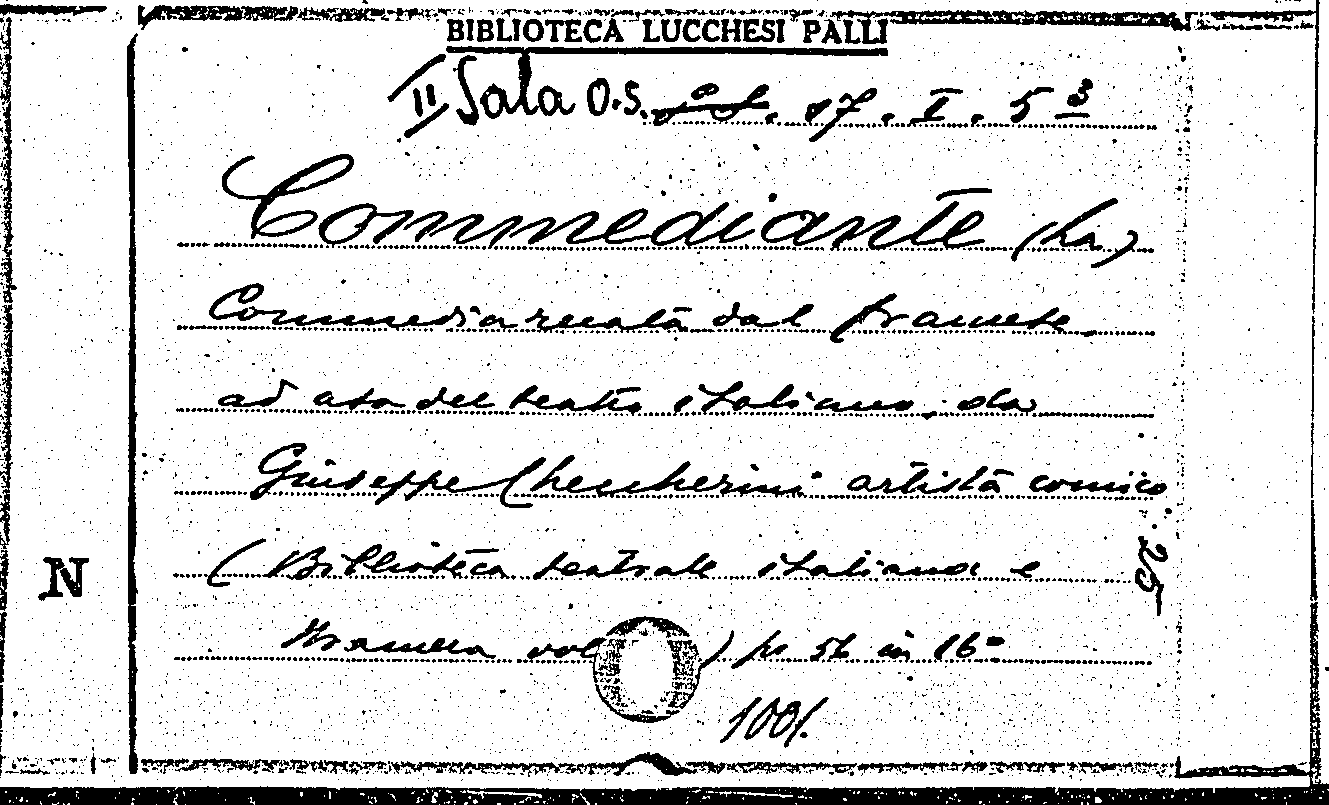 BIBLIOTECA LUCCHESI PALLI
II Sala O.S. 17. I. 5 3
Commediante (La)
Commedia recata dal francese
ad uso del teatro italiano, da
Giuseppe Checcherini artista comico
(Biblioteca teatrale italiana e
straniera vol ) p. 56 in 16º
100/.
N